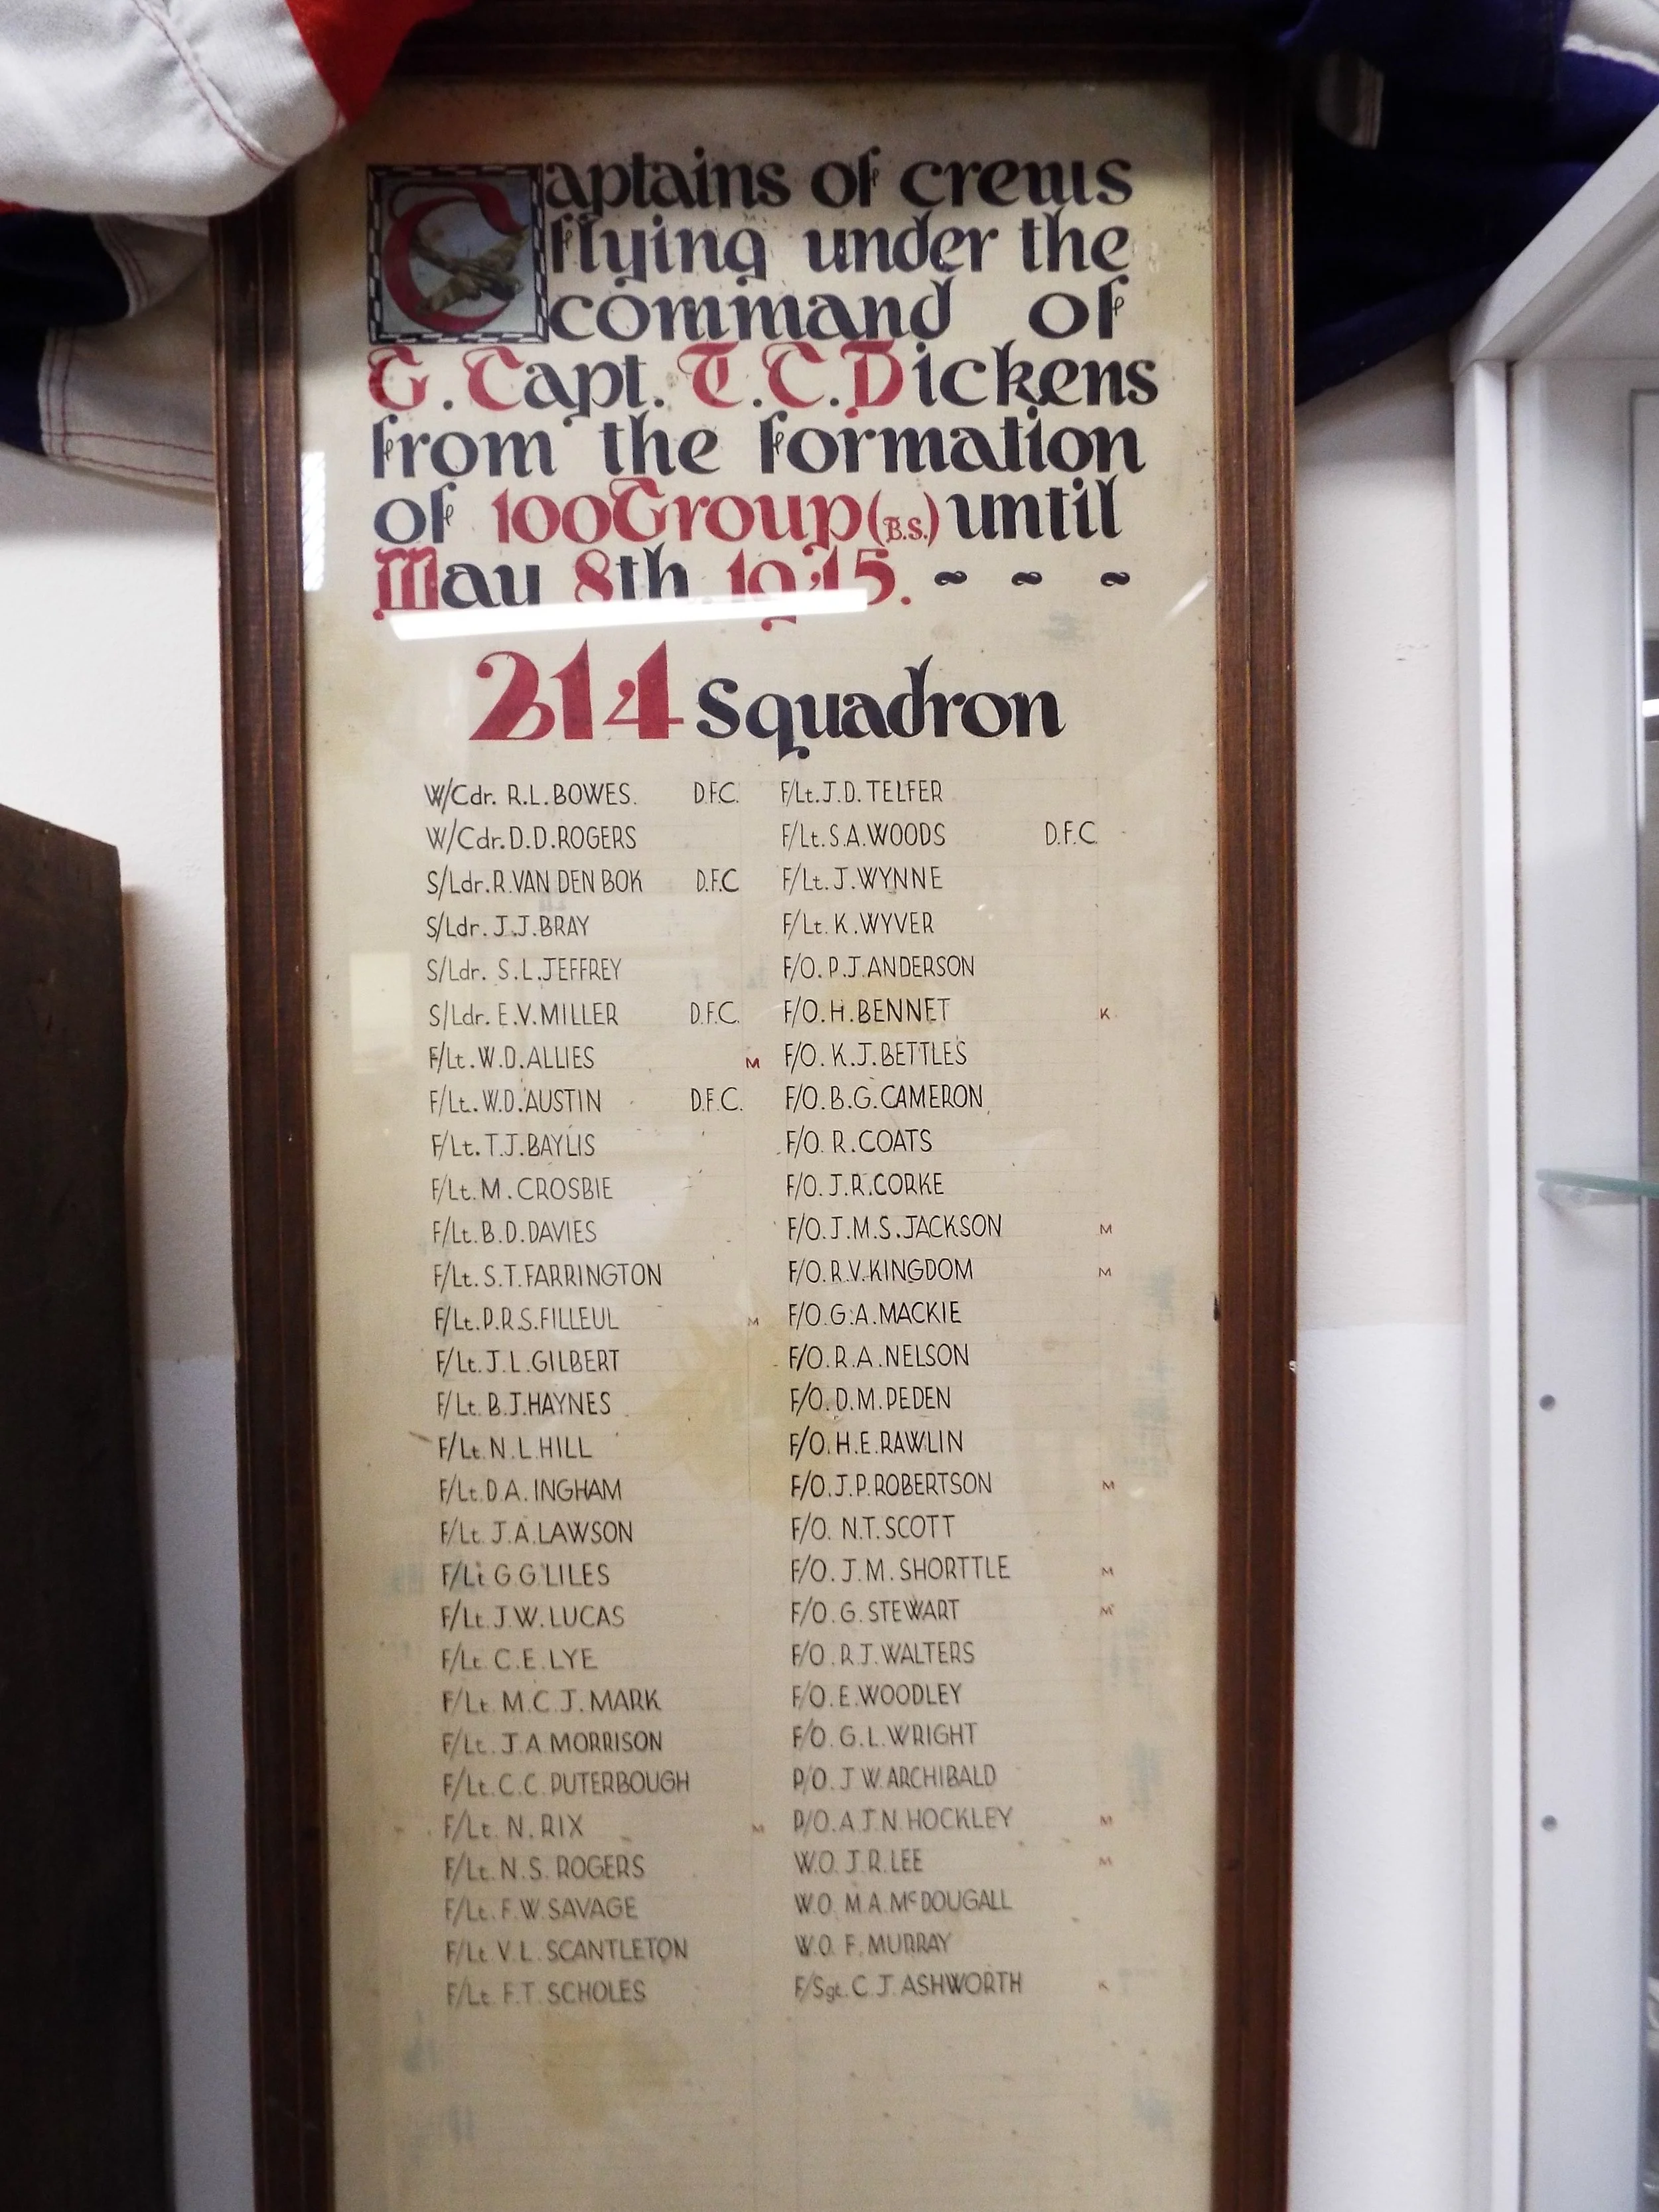 Captains of crews
flying under the
command of
G. Capt. T.C. Dickens
from the formation
of 100 Group (B.S.) until
May 8th. 1945. ~ ~ ~
214 Squadron
W/Cdr. R.L. BOWES. D.F.C.
W/Cdr. D.D. ROGERS
S/Ldr. R. VAN DEN BOK D.F.C
S/Ldr. J.J. BRAY
S/Ldr. S.L. JEFFREY
S/Ldr. E.V. MILLER D.F.C.
F/Lt. W.D. ALLIES M
F/Lt. W.D. AUSTIN D.F.C.
F/Lt. T.J. BAYLIS
F/Lt. M. CROSBIE
F/Lt. B.D. DAVIES
F/Lt. S.T. FARRINGTON
F/Lt. P.R.S. FILLEUL M
F/Lt. J.L. GILBERT
F/Lt. B.J. HAYNES
F/Lt. N.L. HILL
F/Lt. D.A. INGHAM
F/Lt. J.A. LAWSON
F/Lt. G.G. LILES
F/Lt. J.W. LUCAS
F/Lt. C.E. LYE
F/Lt. M.C.J. MARK
F/Lt. J.A. MORRISON
F/Lt. C.C. PUTERBOUGH
F/Lt. N. RIX M
F/Lt. N.S. ROGERS
F/Lt. F.W. SAVAGE
F/Lt. V.L. SCANTLETON
F/Lt. F.T. SCHOLES
F/Lt. J.D. TELFER
F/Lt. S.A. WOODS D.F.C.
F/Lt. J. WYNNE
F/Lt. K. WYVER
F/O. P.J. ANDERSON
F/O. H. BENNET K
F/O. K.J. BETTLES
F/O. B.G. CAMERON
F/O. R. COATS
F/O. J.R. CORKE
F/O. J.M.S. JACKSON M
F/O. R.V. KINGDOM M
F/O. G.A. MACKIE
F/O. R.A. NELSON
F/O. D.M. PEDEN
F/O. H.E. RAWLIN
F/O. J.P. ROBERTSON M
F/O. N.T. SCOTT
F/O. J.M. SHORTTLE M
F/O. G. STEWART M
F/O. R.J. WALTERS
F/O. E. WOODLEY
F/O. G.L. WRIGHT
P/O. J.W. ARCHIBALD
P/O. A.J.N. HOCKLEY M
W.O. J.R. LEE M
W.O. M.A. McDOUGALL
W.O. F. MURRAY
F/Sgt. C.J. ASHWORTH K